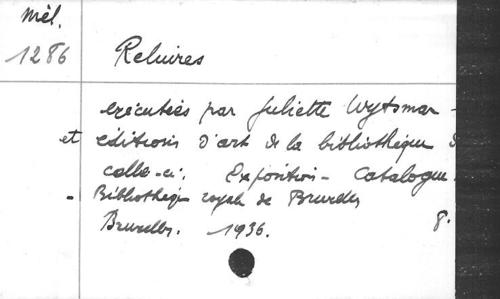 Mél.
1286 Reliures
exécutées par Juliette Wytsman -
et éditions d'art de la bibliothèque d
celle-ci. Exposition - Catalogue.
- Bibliothèque royale de Bruxelles
Bruxelles. 1936. 8°.